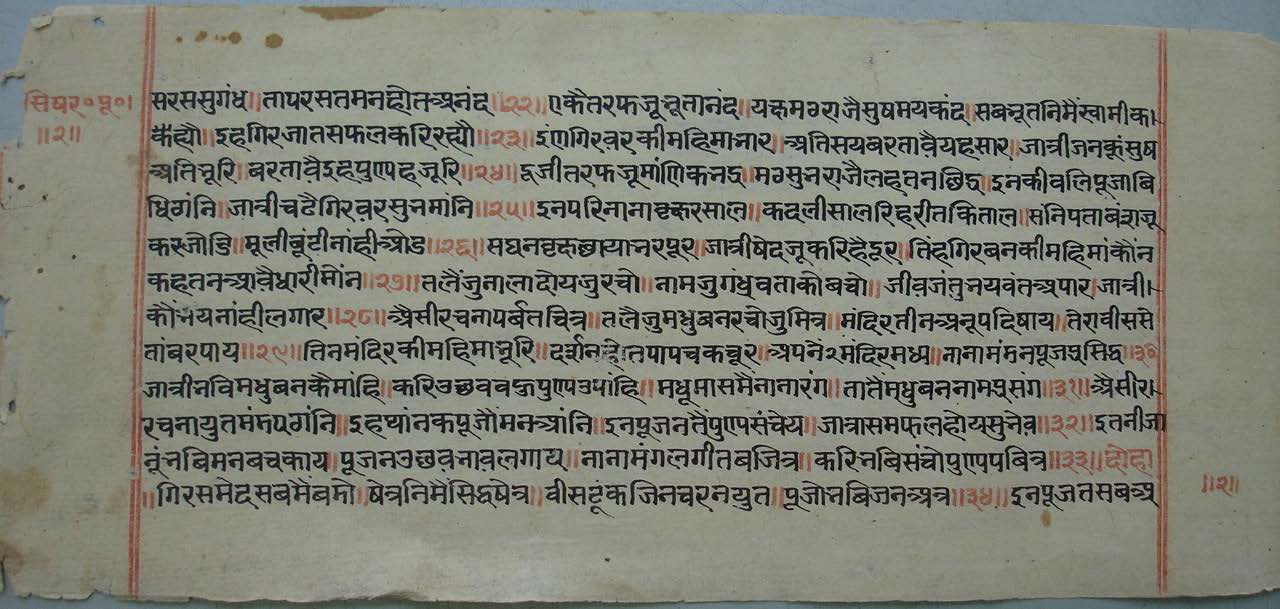 सिषर॰पू॰।
॥२॥
सरससुगंध॥तापरसतमनहोतअनंद॥२२॥एकैतरफजूभूतानंद॥यकमगराजैसुषमयकंद॥सबभूतनिमैंस्वामीक।
कह्यौ॥इहगिरजातसफलकरिरह्यौ॥२३॥इंणगिरवरकीमहिमाभार॥अतिसयबरतावैयहसार॥जात्रीजनकुंसुष
अतिभूरि॥बरतावैइहपुण्यहजूरि॥२४॥दूजीतरफजूमांणिकभद्र॥मगसुभराजैलहतनछिद्र॥इनकीबलिपूजाबि
धिगंनि॥जात्रीचढैगिरवरसुनमांनि॥२५॥इनपरिनानाबृक्षरसाल॥कदलीसालरिहरीतकिताल॥संनिपता
कस्जोडि॥मूलीबुंटीनांहीओड॥२६॥सघनबृक्षछायाभरपूर॥जात्रीषेदजूकरिहैदूर॥तिंहगिरबनकीमहिमांकौंन
कहतनआवैधारीमौंन॥२७॥तलैंजुनालादोयजुरचो॥नामजुगंधुवताकोबचो॥जीवजंतुभयवंतअपार॥जात्री।
कौंभयनांहीलगार॥२८॥अैसीरचनापर्बतचित्र॥तलैजुमधुबनरचोजुमित्र॥मंदिरतीनअनूपदिषाय॥तेराबीससे
तांबरपाय॥२९॥तिनमंदिरकीमहिमाभूरि॥दर्शनहोतपापचकचूर॥अपनें२मंदिरमध्य॥नानामंडनपूजप्रसिद्ध॥३०
जात्रीभविमधुबनकैमांहि॥करिउछवबहुपुण्यउपांहि॥मधूमासमैनानारंग॥तातैमधुबननामप्रसंग॥३१॥अैसीर।
रचनायुतमंडपगंनि॥इहथांनकपूजौंमनआंनि॥इनपूजनतैंपुण्यसंचेय॥जात्रासमफलहोयसुनेव॥३२॥इतनीजा
नूंभबिमनबचकाय॥पूजनउछवभावलगाय॥नानामंगलगीतबजित्र॥करिभबिसंचोपुण्यपबित्र॥३३॥दोहा
॥गिरसमेदसबमैंबडो॥षेत्रनिमैंसिद्धषेत्र॥बीसटूंकजिनचरनयुत॥पूजोभबिजनअत्र॥३४॥इनपूजतसबअ
॥२॥